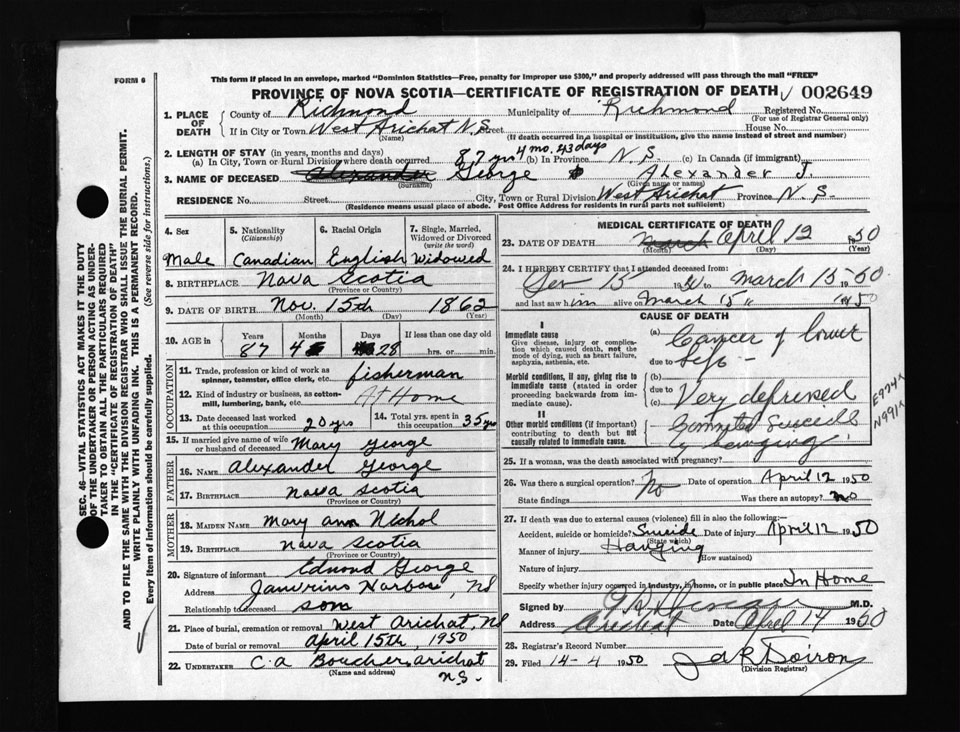 FORM 6
This form if placed in an envelope, marked "Dominion Statistics—Free, penalty for improper use $300," and properly addressed will pass through the mail "FREE"
PROVINCE OF NOVA SCOTIA—CERTIFICATE OF REGISTRATION OF DEATH 002649
1. PLACE OF DEATH
County of Richmond Municipality of Richmond Registered No.
(For use of Registrar General only)
If in City or Town West Arichat N.S. Street House No.
(Name) (If death occurred in a hospital or institution, give the name instead of street and number)
2. LENGTH OF STAY (in years, months and days)
(a) In City, Town or Rural Division where death occurred 87 yrs 4 mo. 43 days (b) In Province N.S. (c) In Canada (if immigrant)
3. NAME OF DECEASED Alexander George Alexander J.
(Surname) (Given name or names)
RESIDENCE No. Street City, Town or Rural Division West Arichat Province N.S.
(Residence means usual place of abode. Post Office Address for residents in rural parts not sufficient)
4. Sex
5. Nationality
(Citizenship)
6. Racial Origin
7. Single, Married, Widowed or Divorced
(write the word)
Male Canadian English Widowed
8. BIRTHPLACE Nova Scotia
(Province or Country)
9. DATE OF BIRTH Nov. 15th 1862
(Month) (Day) (Year)
10. AGE in Years Months Days If less than one day old
87 4 28 hrs. or min.
OCCUPATION
11. Trade, profession or kind of work as spinner, teamster, office clerk, etc. fisherman
12. Kind of industry or business, as cotton-mill, lumbering, bank, etc. At Home
13. Date deceased last worked at this occupation 20 yrs
14. Total yrs. spent in this occupation 35 yrs
15. If married give name of wife or husband of deceased Mary George
FATHER
16. NAME Alexander George
17. BIRTHPLACE Nova Scotia
(Province or Country)
MOTHER
18. MAIDEN NAME Mary Ann Nichol
19. BIRTHPLACE Nova Scotia
(Province or Country)
20. Signature of informant Edmond George
Address Janvrins Harbor, NS
Relationship to deceased son
21. Place of burial, cremation or removal West Arichat, NS
Date of burial or removal April 15th, 1950
22. UNDERTAKER C. A Boucher, Arichat
(Name and address) N.S.
MEDICAL CERTIFICATE OF DEATH
23. DATE OF DEATH March April 12 1950
(Month) (Day) (Year)
24. I HEREBY CERTIFY that I attended deceased from:
15 19 to March 15 - 50
and last saw him alive on March 15 1950
CAUSE OF DEATH
I
Immediate cause
Give disease, injury or complication which caused death, not the mode of dying, such as heart failure, asphyxia, asthenia, etc.
Morbid conditions, if any, giving rise to immediate cause (stated in order proceeding backwards from immediate cause).
II
Other morbid conditions (if important) contributing to death but not causally related to immediate cause.
(a) Cancer of lower
due to lip -
(b)
due to
(c) Very depressed
Committed Suicide
by hanging.
E974X
N991X
25. If a woman, was the death associated with pregnancy?
26. Was there a surgical operation? No Date of operation April 12 1950
State findings Was there an autopsy? no
27. If death was due to external causes (violence) fill in also the following:—
Accident, suicide or homicide? Suicide Date of injury April 12 1950
(State which)
Manner of injury Hanging
(How sustained)
Nature of injury
Specify whether injury occurred in industry, in home, or in public place In Home
Signed by M.D.
Address Arichat Date April 14 1950
28. Registrar's Record Number
29. Filed 14-4 1950 Doiron
(Division Registrar)
SEC. 46—VITAL STATISTICS ACT MAKES IT THE DUTY OF THE UNDERTAKER OR PERSON ACTING AS UNDERTAKER TO OBTAIN ALL THE PARTICULARS REQUIRED IN THE "CERTIFICATE OF REGISTRATION OF DEATH"
AND TO FILE THE SAME WITH THE DIVISION REGISTRAR WHO SHALL ISSUE THE BURIAL PERMIT.
WRITE PLAINLY WITH UNFADING INK. THIS IS A PERMANENT RECORD.
Every item of information should be carefully supplied. (See reverse side for instructions.)